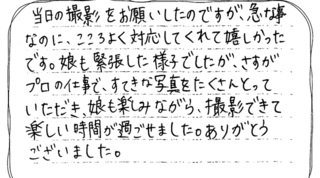 当日の撮影をお願いしたのですが、急な事
なのに、こころよく対応してくれて嬉しかった
です。娘も緊張した様子でしたが、さすが
プロの仕事で、すてきな写真をたくさんとって
いただき、娘も楽しみながら、撮影できて
楽しい時間が過ごせました。ありがとう
ございました。